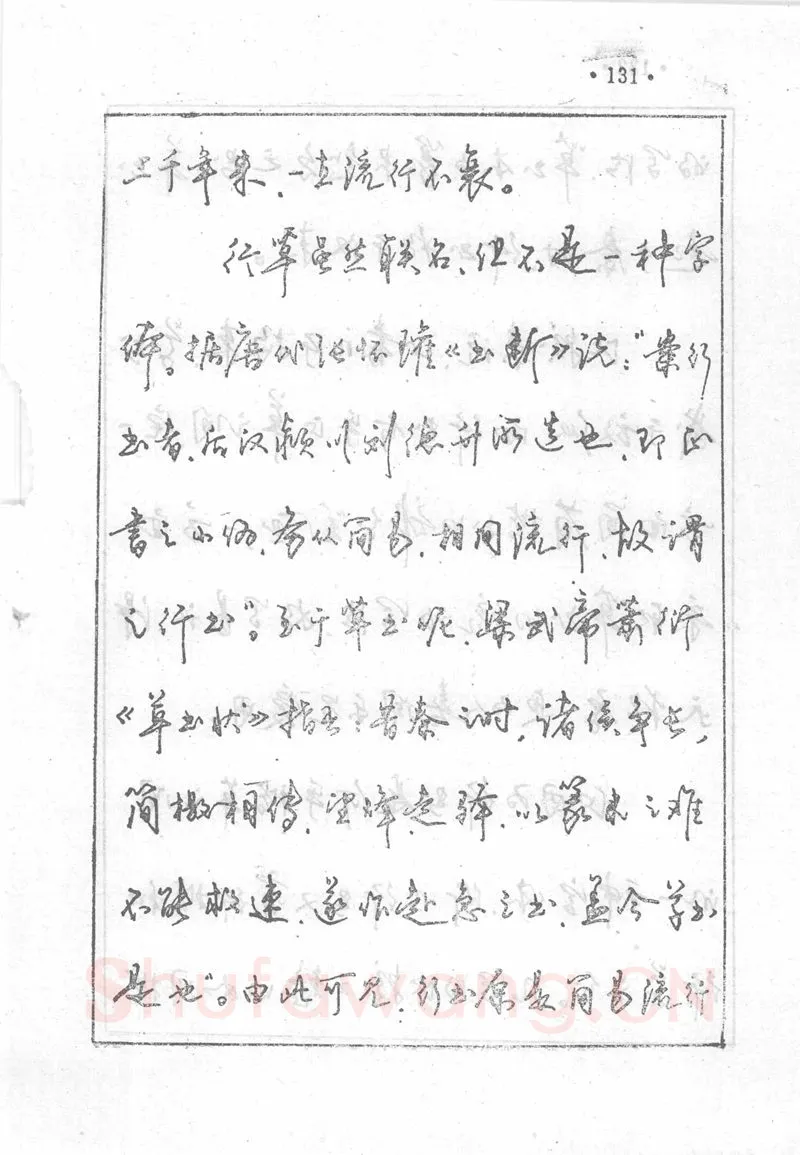 ·131·
上千年来，一直流行不衰。
行草虽然联名，但不是一种字
体。据唐代张怀瓘《书断》说："案行
书者，后汉颍川刘德升所造也，即正
书之小伪，务从简易，相间流行，故谓
之行书"。至于草书呢，梁武帝萧衍
《草书状》指出：昔秦之时，诸侯争长，
简檄相传，望烽走驿，以篆隶之难
不能救速，遂作赴急之书，盖今草书
是也"。由此可见，行书原是简易流行
Shufawang.CN